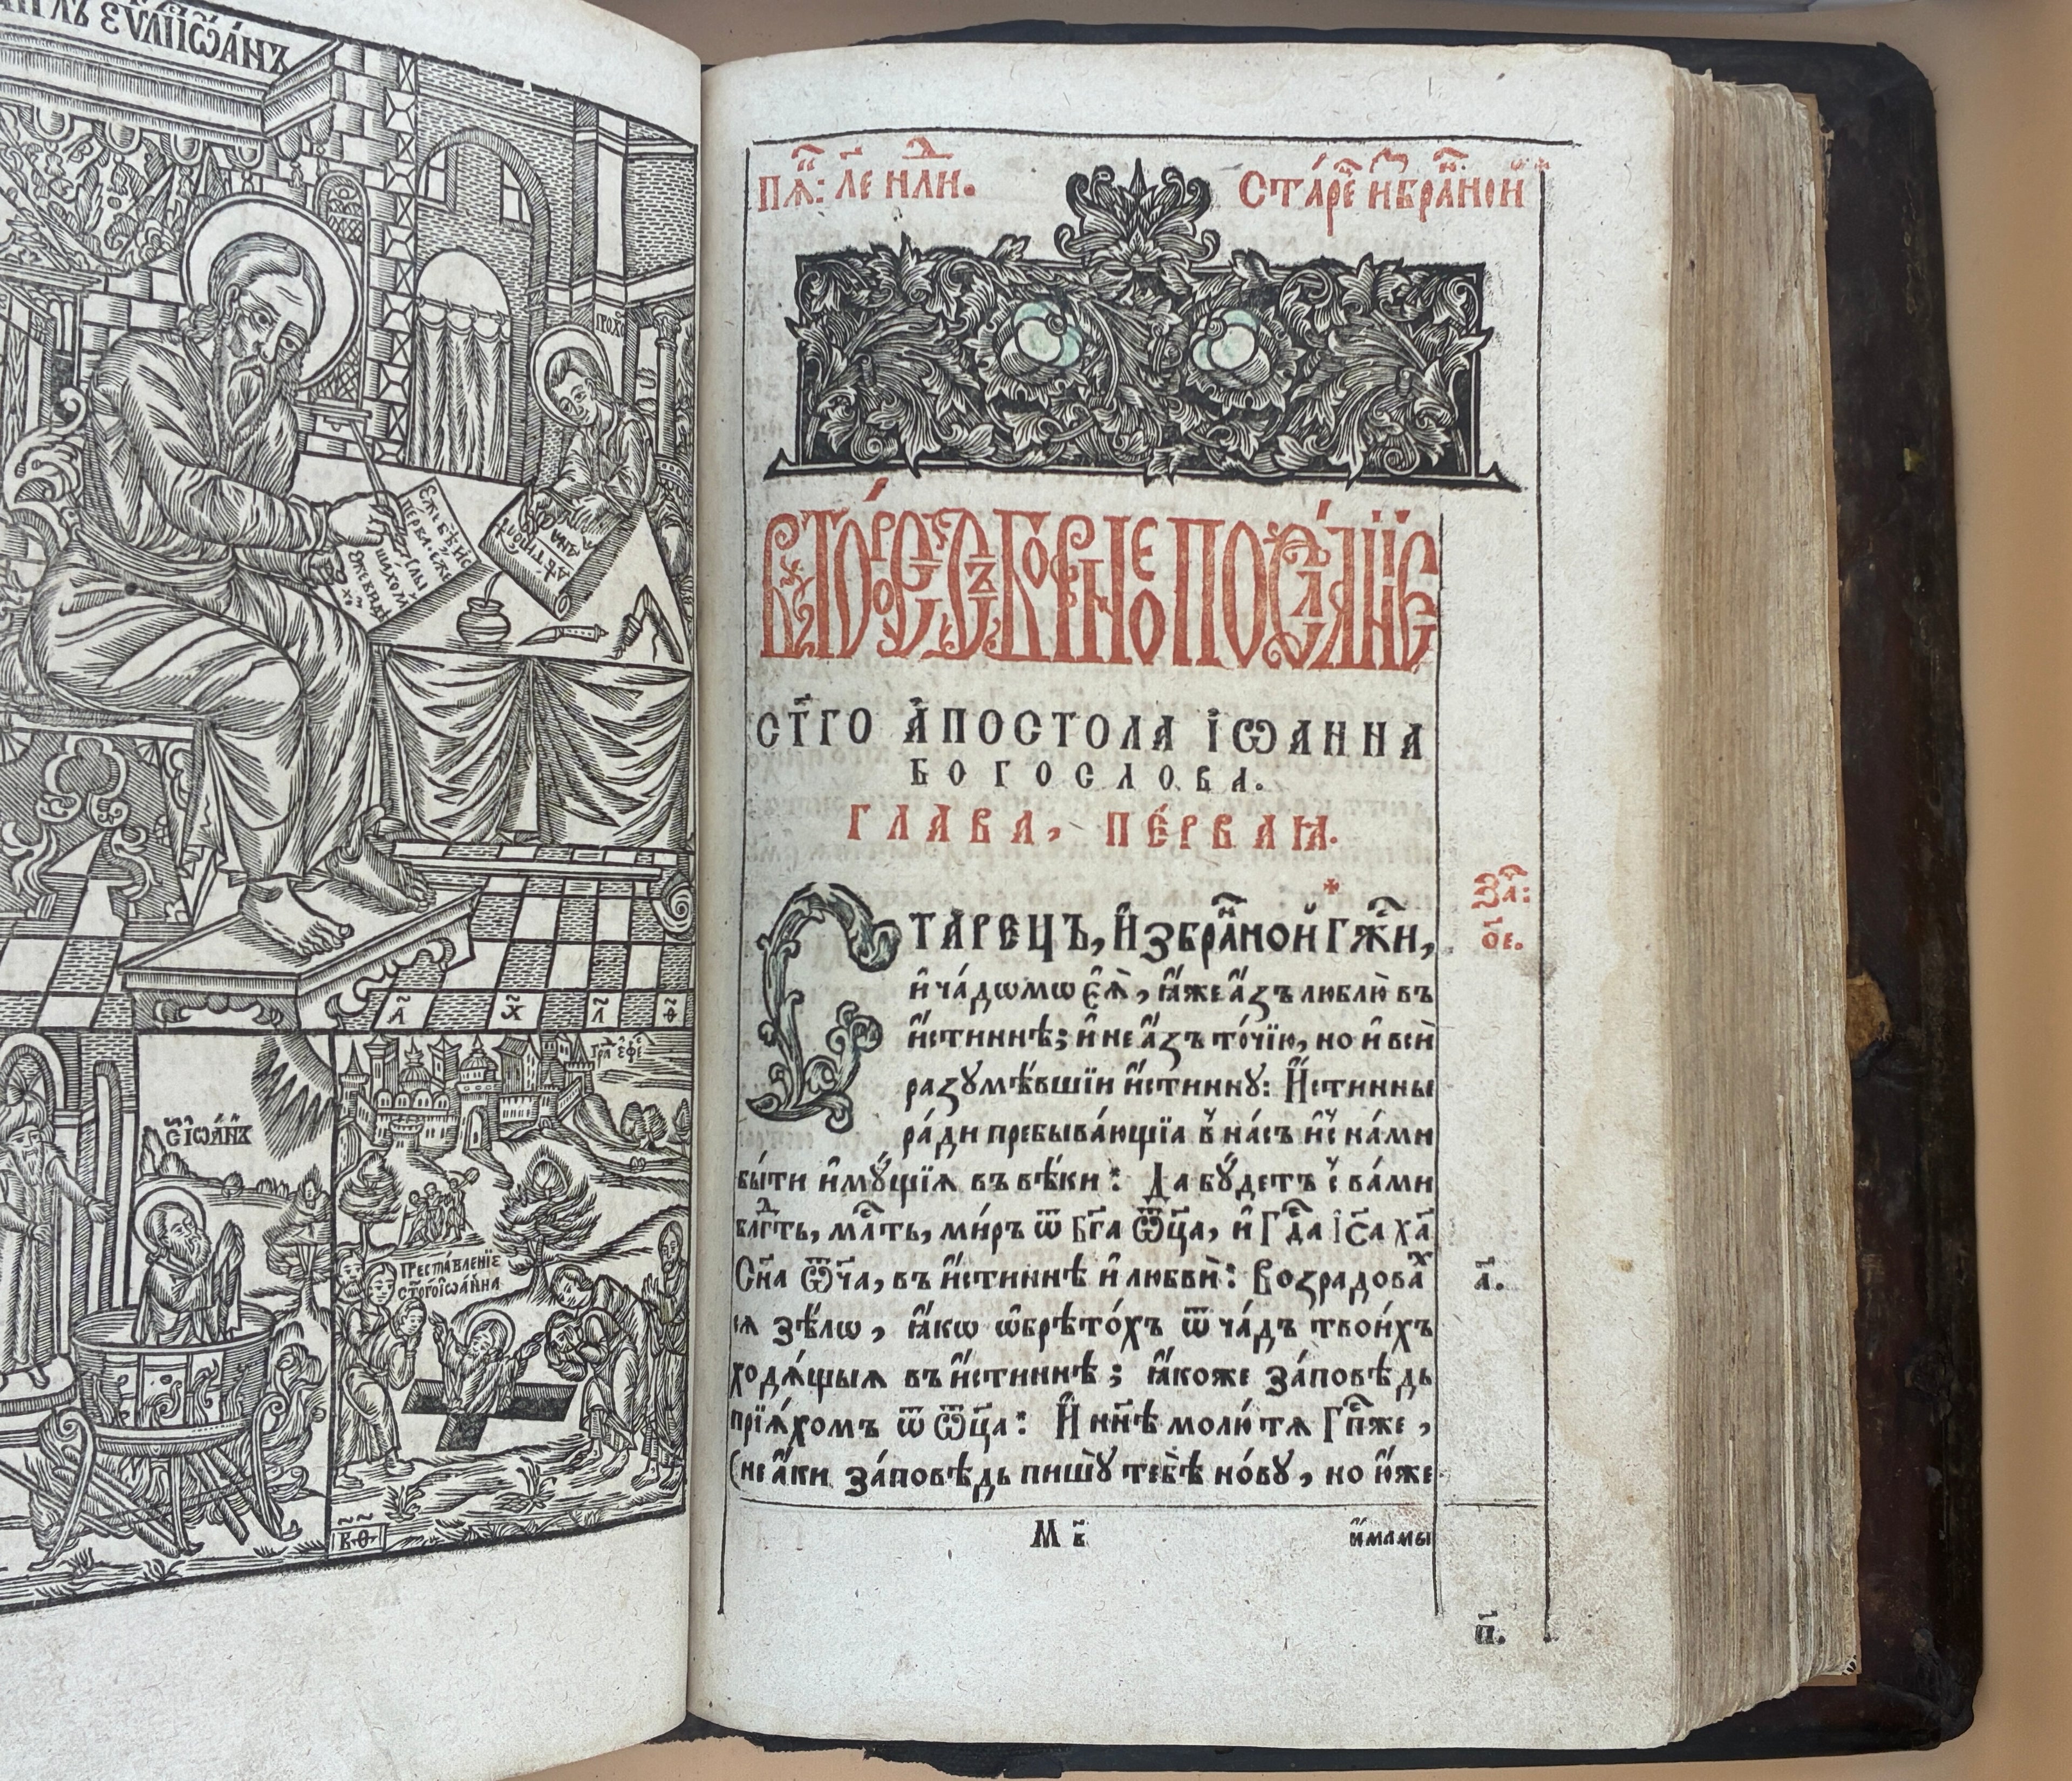 ЕѴЛІѠА́НЪ
ПРОХО
Є҆́же бѣ̀ ис
перва · є҆́же
слы
шахом
є҆́же видѣ
хо
Дѣѧ
а҃ х҃ л҃ ѳ҃
С҃ ІѠА́НЪ
Гра́ Є҆фе
Преста́вленїе
ст҃о́гоїѡа́нна
В҃ · Ѳ҃
Пѧ҃: л҃е н҃ли.
Ста́ре҃ и҆збра́нной
ВТОРО́Е СОБОРНОЕ ПОСЛА́НЇЕ
СТ҃ГО А҆ПОСТОЛА І҆ѠАННА
БОГОСЛОВА.
ГЛАВА, ПЕ́РВАꙖ.
СТАРЕЦЪ, И҆збра́нной Гж҃и,
За҃:
о҃е.
и҆ ча́дѡмѡ є҆ѧ̀, ꙗ҆́же а҆́зъ люблю̀ въ
и҆́стиннѣ; и҆ не а҆́зъ то́чїю, но и҆ всѝ
разꙋмѣ́вшїи и҆́стиннꙋ: И҆́стинны
ра́ди пребыва́ющїѧ в на́съ и҆ с на́ми
бы́ти и҆мꙋ́щїѧ въ вѣ́ки: Да бꙋ́детъ с ва́ми
блг҃ть, мл҃ть, ми́ръ ѿ Бг҃а Ѿц҃а, и҆ Гд҃а І҆с҃а Х҃а
Сн҃а Ѿч҃а, въ и҆́стиннѣ и҆ любвѝ: Возрадовах
а҃.
сѧ ѕѣ́лѡ, ꙗ҆́кѡ ѡ҆брѣто́хъ ѿ ча́дъ твои́хъ
ходѧ́щыѧ въ и҆́стиннѣ; ꙗ҆́коже за́повѣдь
прїѧ́хомъ ѿ Ѿц҃а: И҆ нн҃ѣ молю́ тѧ Гп҃же,
(не а҆́ки за́повѣдь пишꙋ̀ тебѣ̀ но́вꙋ, но ю҆́же
М в҃
и҆́мамы
п҃.